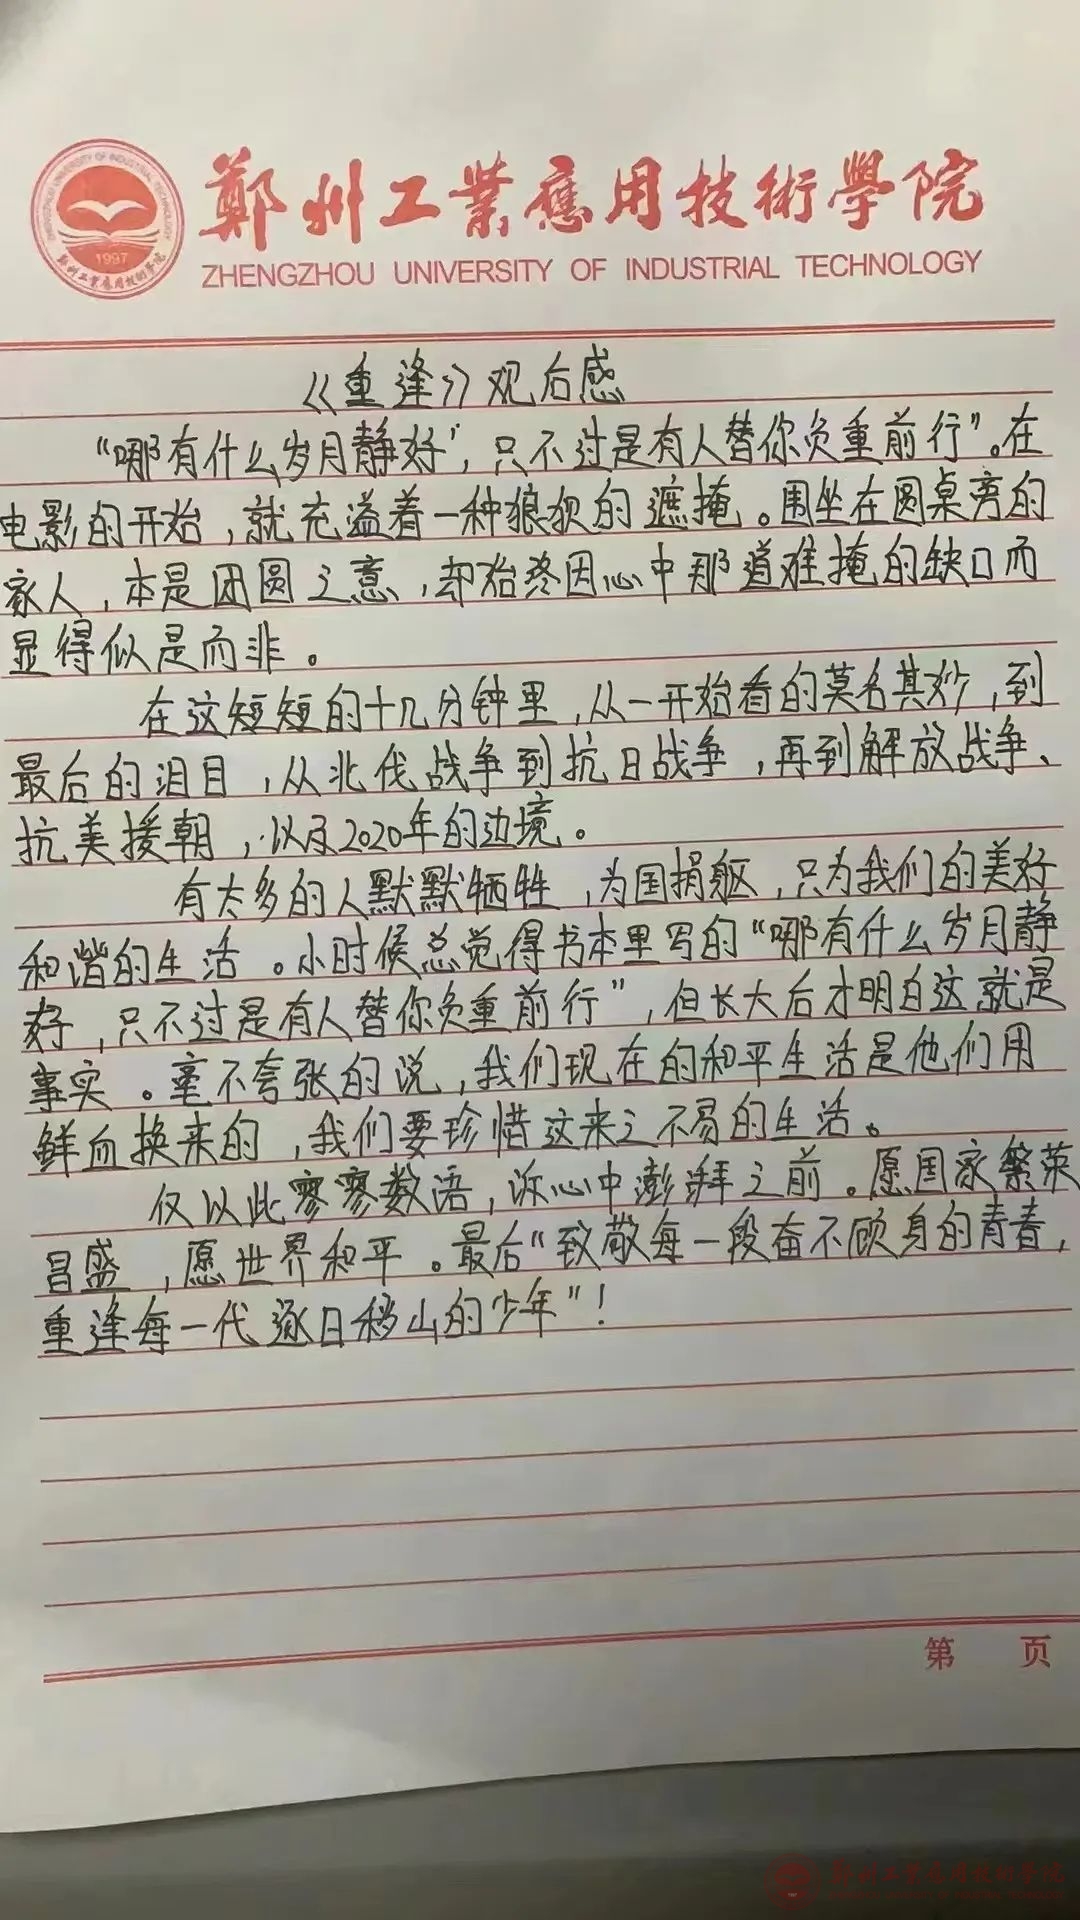 鄭州工業應用技術學院
ZHENGZHOU UNIVERSITY OF INDUSTRIAL TECHNOLOGY
1997
《重逢》观后感
“哪有什么岁月静好”，只不过是有人替你负重前行”。在
电影的开始，就充溢着一种狼狈的遮掩。围坐在圆桌旁的
家人，本是团圆之意，却始终因心中那道难掩的缺口而
显得似是而非。
在这短短的十几分钟里，从一开始看的莫名其妙，到
最后的泪目，从北伐战争到抗日战争，再到解放战争、
抗美援朝，以及2020年的边境。
有太多的人默默牺牲，为国捐躯，只为我们的美好
和谐的生活。小时候总觉得书本里写的“哪有什么岁月静
好，只不过是有人替你负重前行”，但长大后才明白这就是
事实。毫不夸张的说，我们现在的和平生活是他们用
鲜血换来的，我们要珍惜这来之不易的生活。
仅以此寥寥数语，诉心中澎湃之前。愿国家繁荣
昌盛，愿世界和平。最后“致敬每一段奋不顾身的青春，
重逢每一代逐日移山的少年”！
第 页
鄭州工業應用技術學院